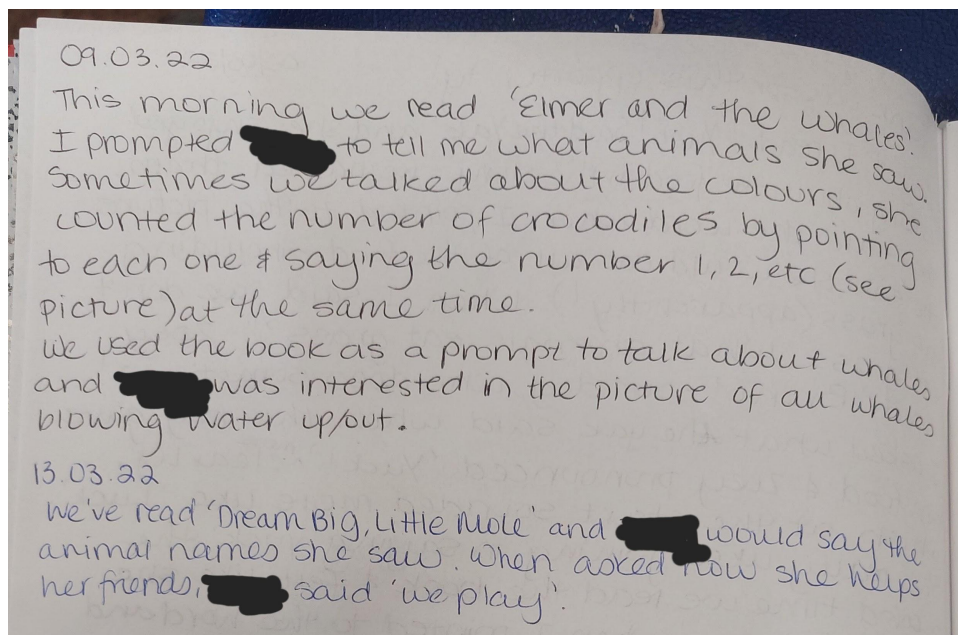 09.03.22
This morning we read 'Elmer and the whales'.
I prompted to tell me what animals she saw.
Sometimes we talked about the colours, she
counted the number of crocodiles by pointing
to each one & saying the number 1, 2, etc (see
picture) at the same time.
We used the book as a prompt to talk about whales
and was interested in the picture of all whales
blowing water up/out.
13.03.22
We've read 'Dream Big, Little Mole' and would say the
animal names she saw. When asked how she helps
her friends, said 'we play'.